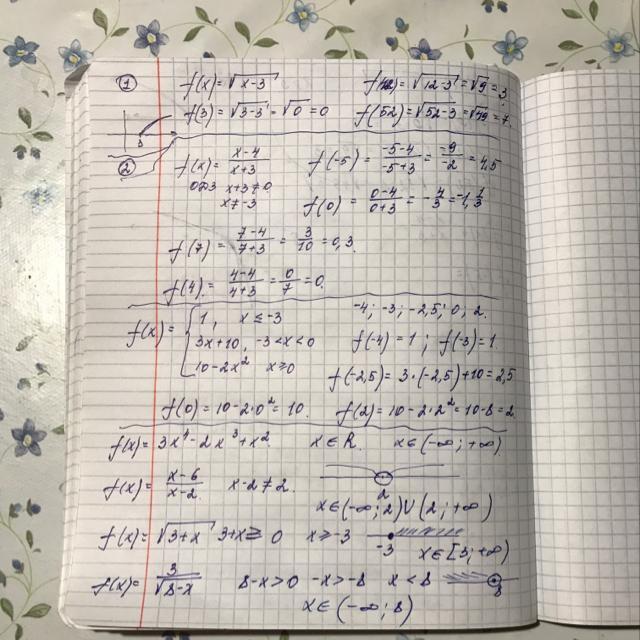 1 f(x) = √x-3 f(12) = √12-3 = √9 = 3
f(3) = √3-3 = √0 = 0 f(52) = √52-3 = √49 = 7
3
2 f(x) = x-4 / x+3 f(-5) = -5-4 / -5+3 = -9 / -2 = 4,5
ОДЗ x+3≠0
x≠-3 f(0) = 0-4 / 0+3 = -4/3 = -1 1/3
f(7) = 7-4 / 7+3 = 3/10 = 0,3
f(4) = 4-4 / 4+3 = 0/7 = 0
f(x) = { 1, x ≤ -3 -4; -3; -2,5; 0; 2.
3x+10, -3<x<0 f(-4) = 1; f(-3) = 1
10-2x² x≥0 f(-2,5) = 3·(-2,5)+10 = 2,5
f(0) = 10-2·0² = 10. f(2) = 10-2·2² = 10-8 = 2
f(x) = 3x⁴-2x³+x² x∈R. x∈(-∞; +∞)
f(x) = x-6 / x-2 x-2≠2. 2
x∈(-∞; 2)U(2; +∞)
f(x) = √3+x 3+x≥0 x≥-3 -3
x∈[3; +∞)
f(x) = 3 / √8-x 8-x>0 -x>-8 x<8 8
x∈(-∞; 8)